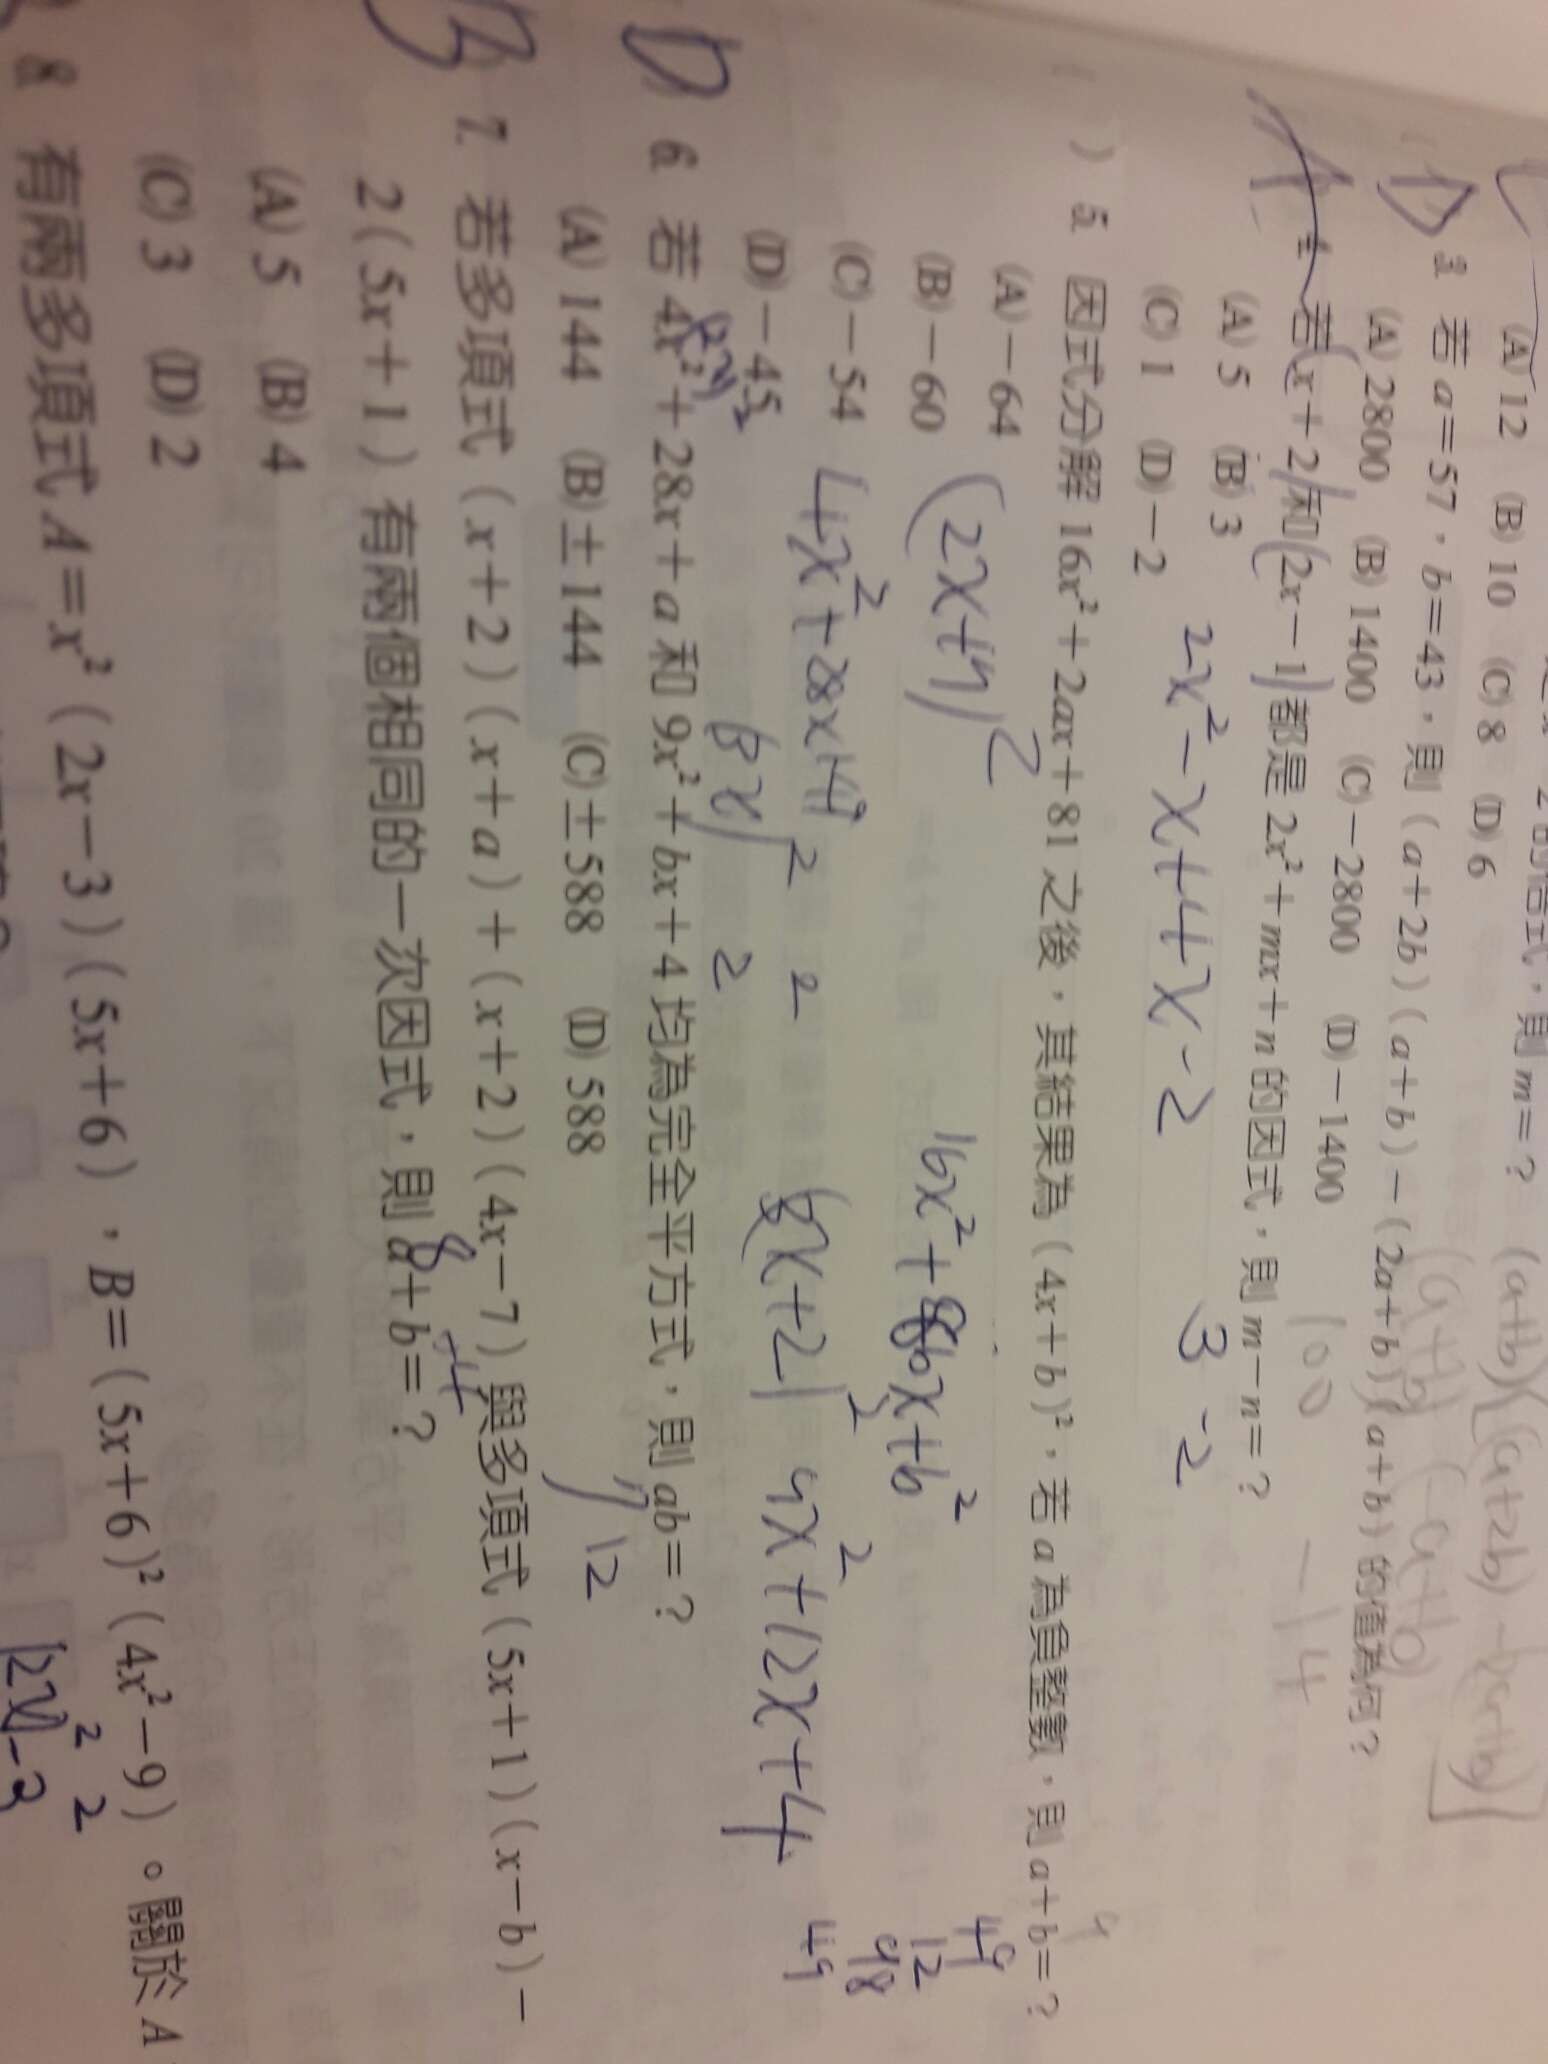 2 的倍式，則 m＝？
(A) 12 (B) 10 (C) 8 (D) 6
(a+b)[(a+2b)-(2a+b)]
D 3. 若 a＝57，b＝43，則（a＋2b）（a＋b）－（2a＋b）（a＋b）的值為何？
(a+b)(-a+b)
(A) 2800 (B) 1400 (C)－2800 (D)－1400
100 -14
A 4. 若 x＋2 和 2x－1 都是 2x²＋mx＋n 的因式，則 m－n＝？
(A) 5 (B) 3
(C) 1 (D)－2
2x²-x+4x-2 3 -2
) 5. 因式分解 16x²＋2ax＋81 之後，其結果為（4x＋b）²，若 a 為負整數，則 a＋b＝？
(A)－64
(B)－60
(C)－54
(D)－45
(2x+7)²
16x²+8bx+b²
4x²+28x+49
49
12
98
49
D 6. 若 4x²＋28x＋a 和 9x²＋bx＋4 均為完全平方式，則 ab＝？
(A) 144 (B)±144 (C)±588 (D) 588
12
B 7. 若多項式（x＋2）（x＋a）＋（x＋2）（4x－7）與多項式（5x＋1）（x－b）－
2（5x＋1）有兩個相同的一次因式，則 a＋b＝？
8 -4
(A) 5 (B) 4
(C) 3 (D) 2
8. 有兩多項式 A＝x²（2x－3）（5x＋6），B＝（5x＋6）²（4x²－9）。關於 A